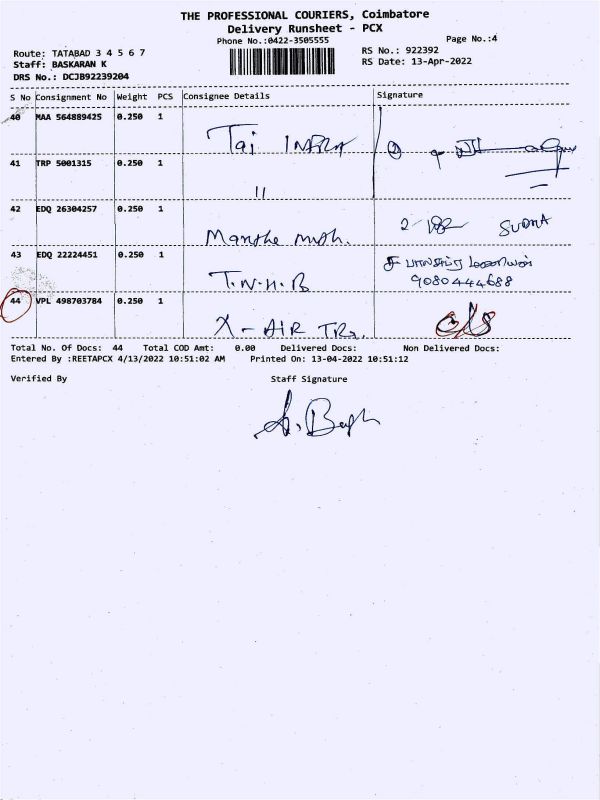 THE PROFESSIONAL COURIERS, Coimbatore
Delivery Runsheet - PCX
Phone No.:0422-3505555
Page No.:4
Route: TATABAD 3 4 5 6 7
RS No.: 922392
Staff: BASKARAN K
RS Date: 13-Apr-2022
DRS No.: DCJB92239204
S No Consignment No Weight PCS Consignee Details Signature
40 MAA 564889425 0.250 1
41 TRP 5001315 0.250 1 "
42 EDQ 26304257 0.250 1
43 EDQ 22224451 0.250 1 T.N.H.B 9080444688
44 VPL 498703784 0.250 1 X-AIR TR
Total No. Of Docs: 44 Total COD Amt: 0.00 Delivered Docs: Non Delivered Docs:
Entered By :REETAPCX 4/13/2022 10:51:02 AM Printed On: 13-04-2022 10:51:12
Verified By Staff Signature